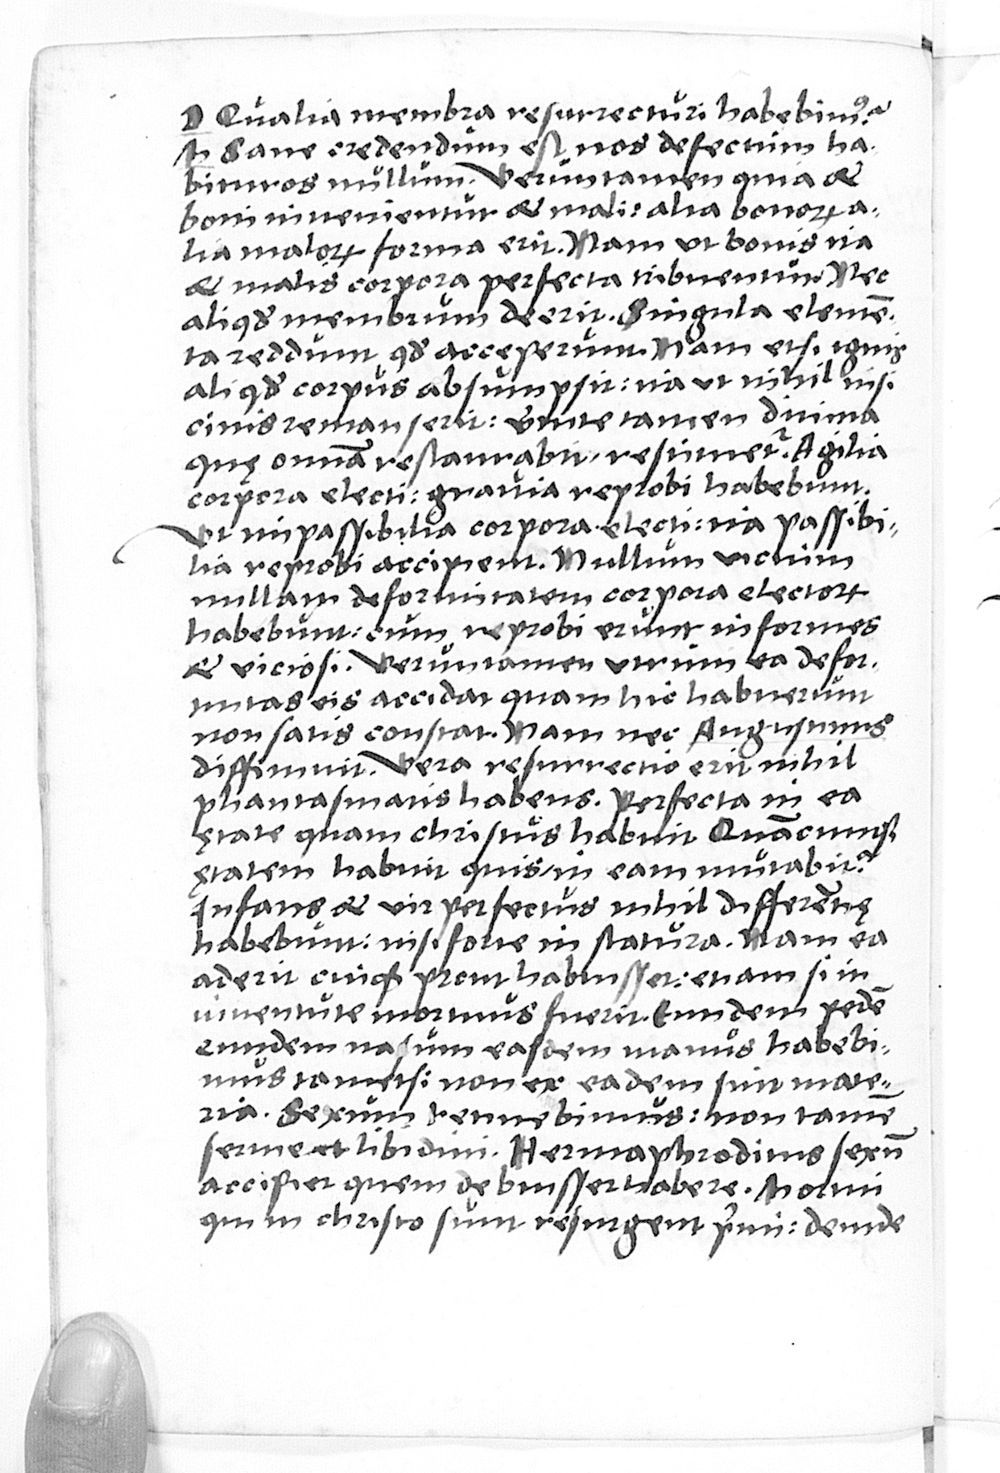 D Qualia membra resurrecturi habebim⁹?
M Sane credendum est nos defectum ha-
bituros nullum. Veruntamen quia &
boni invenientur & mali: alia bonoꝝ a-
lia maloꝝ forma erit. Nam ut bonis ita
& malis corpora perfecta tribuentur. Nec
aliqđ membrum deerit. Singula elemē-
ta reddunt qđ acceperunt. Nam etsi ignis
aliqđ corpus absumpsit: ita ut nihil nisi
cinis remanserit: v̄tute tamen divina
quę omnia restaurabit, resumet᷑. Agilia
corpora electi: gravia reprobi habebunt.
Ut impassibilia corpora electi: ita passibi-
lia reprobi accipient. Nullum vicium
nullam deformitatem corpora electoꝝ
habebunt: cum reprobi erunt informes
& viciosi. Veruntamen utrum ea defor-
mitas eis accidat quam hic habuerunt
non satis constat. Nam nec Augustinus
diffinivit. Vera resurrectio erit nihil
phantasmatis habens. Perfecta in ea
ętate quam christus habuit Quācunqꝫ
ętatem habuit quis, in eam mutabit᷑.
Infans & vir perfectus nihil differētię
habebunt: nisi forte in statura. Nam ea
aderit cuiqꝫ prout habuisset: etiam si in
iuventute mortuus fuerit. Eundem pedē
eundem nasum easdem manus habebi-
mus tametsi non ex eadem sint mate-
ria. Sexum retinebimus: non tamē
serviet libidini. Hermaphroditus sexū
accipiet quem debuisset habere. Mortui
qui in christo sunt resurgent p̄mi: deinde